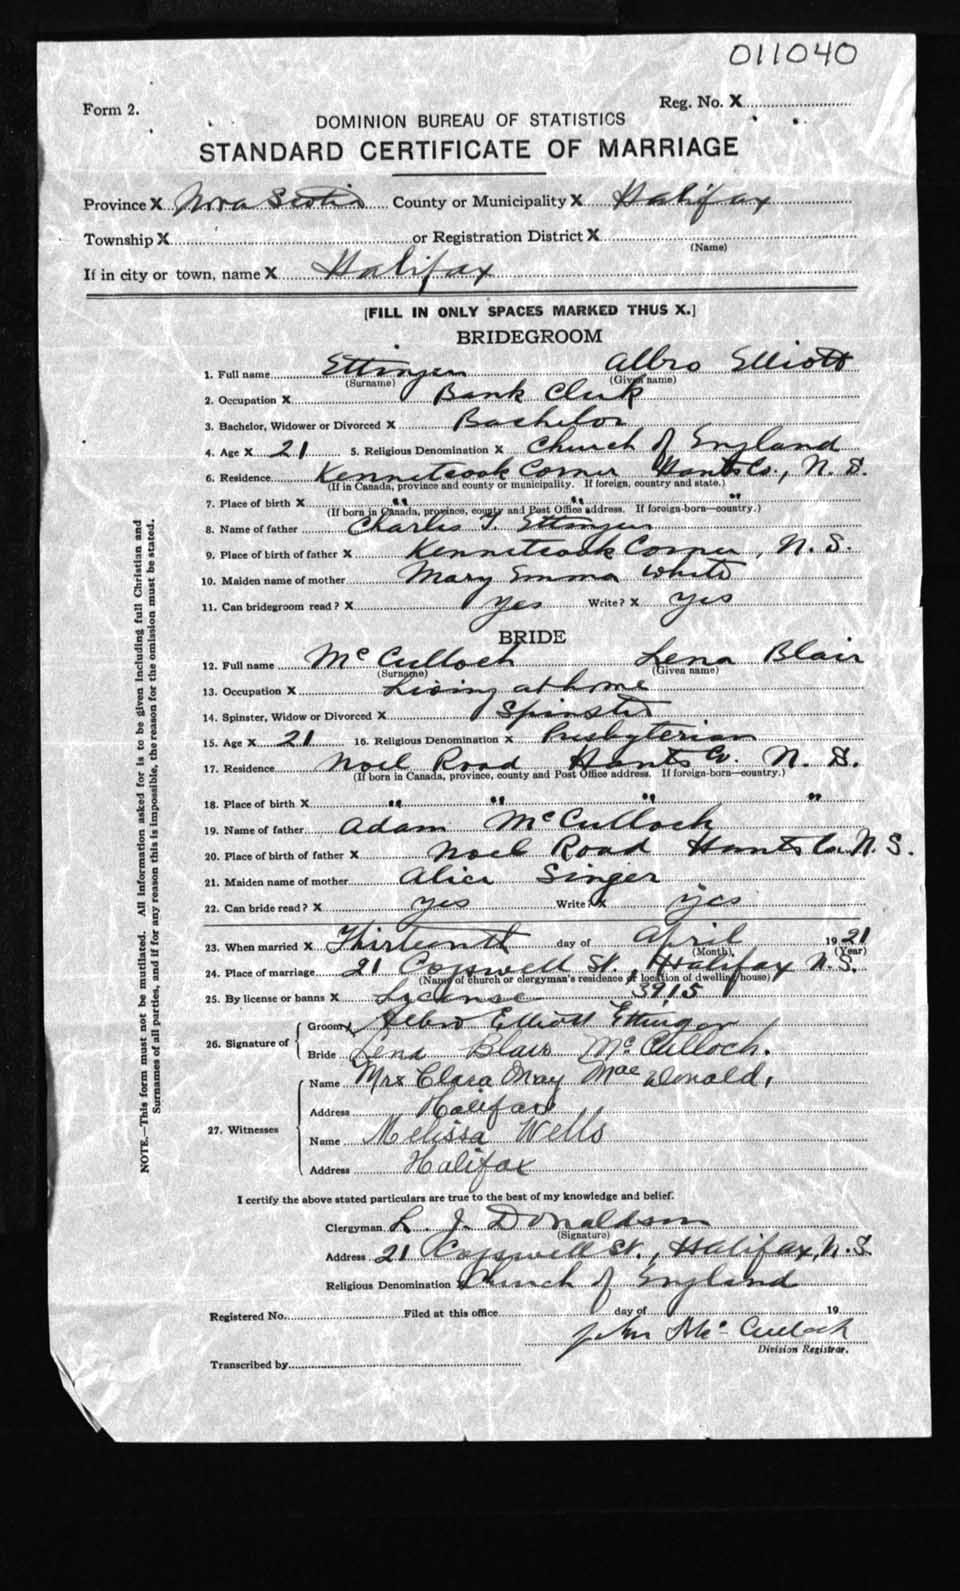 011040
Form 2.
Reg. No. X
DOMINION BUREAU OF STATISTICS
STANDARD CERTIFICATE OF MARRIAGE
Province X Nova Scotia County or Municipality X Halifax
Township X or Registration District X
(Name)
If in city or town, name X Halifax
[FILL IN ONLY SPACES MARKED THUS X.]
BRIDEGROOM
1. Full name Ettinger Albro Elliott
(Surname) (Given name)
2. Occupation X Bank Clerk
3. Bachelor, Widower or Divorced X Bachelor
4. Age X 21 5. Religious Denomination X Church of England
6. Residence Kennetcook Corner Hants Co., N. S.
(If in Canada, province and county or municipality. If foreign, country and state.)
7. Place of birth X " " "
(If born in Canada, province, county and Post Office address. If foreign-born—country.)
8. Name of father Charles T. Ettinger
9. Place of birth of father X Kennetcook Corner, N. S.
10. Maiden name of mother Mary Emma White
11. Can bridegroom read? X yes Write? X yes
BRIDE
12. Full name McCulloch Lena Blair
(Surname) (Given name)
13. Occupation X Living at home
14. Spinster, Widow or Divorced X Spinster
15. Age X 21 16. Religious Denomination X Presbyterian
17. Residence Noel Road Hants Co. N. S.
(If born in Canada, province, county and Post Office address. If foreign-born—country.)
18. Place of birth X " " " "
19. Name of father Adam McCulloch
20. Place of birth of father X Noel Road Hants Co. N. S.
21. Maiden name of mother Alice Singer
22. Can bride read? X yes Write? X yes
23. When married X Thirteenth day of April 1921
(Month) (Year)
24. Place of marriage 21 Cogswell St., Halifax N. S.
(Name of church or clergyman's residence or location of dwelling house)
25. By license or banns X License 3915
26. Signature of Groom X Albro Elliott Ettinger
Bride Lena Blair McCulloch.
27. Witnesses
Name Mrs Clara May MacDonald,
Address Halifax
Name Melissa Wells
Address Halifax
I certify the above stated particulars are true to the best of my knowledge and belief.
Clergyman L. J. Donaldson
(Signature)
Address 21 Cogswell St., Halifax, N. S.
Religious Denomination X Church of England
Registered No. Filed at this office day of 19
John McCulloch
Division Registrar.
Transcribed by
NOTE.—This form must not be mutilated. All information asked for is to be given including full Christian and
Surnames of all parties, and if for any reason this is impossible, the reason for the omission must be stated.